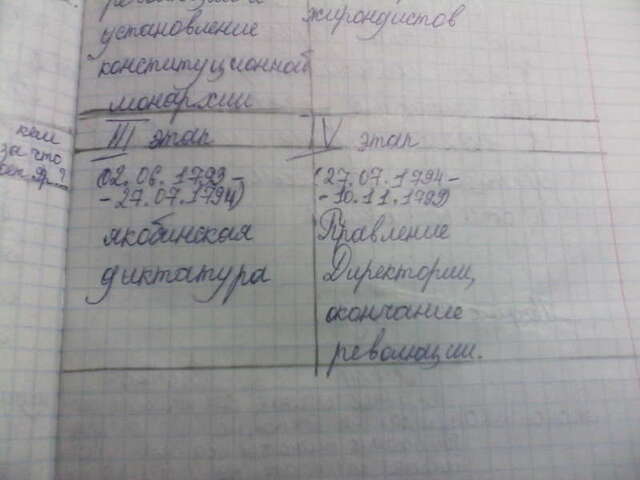 установление
конституционной
монархии
жирондистов
кем
за что
III этап
(02.06.1793-
-27.07.1794)
якобинская
диктатура
IV этап
(27.07.1794-
-10.11.1799)
Правление
Директории,
окончание
революции.